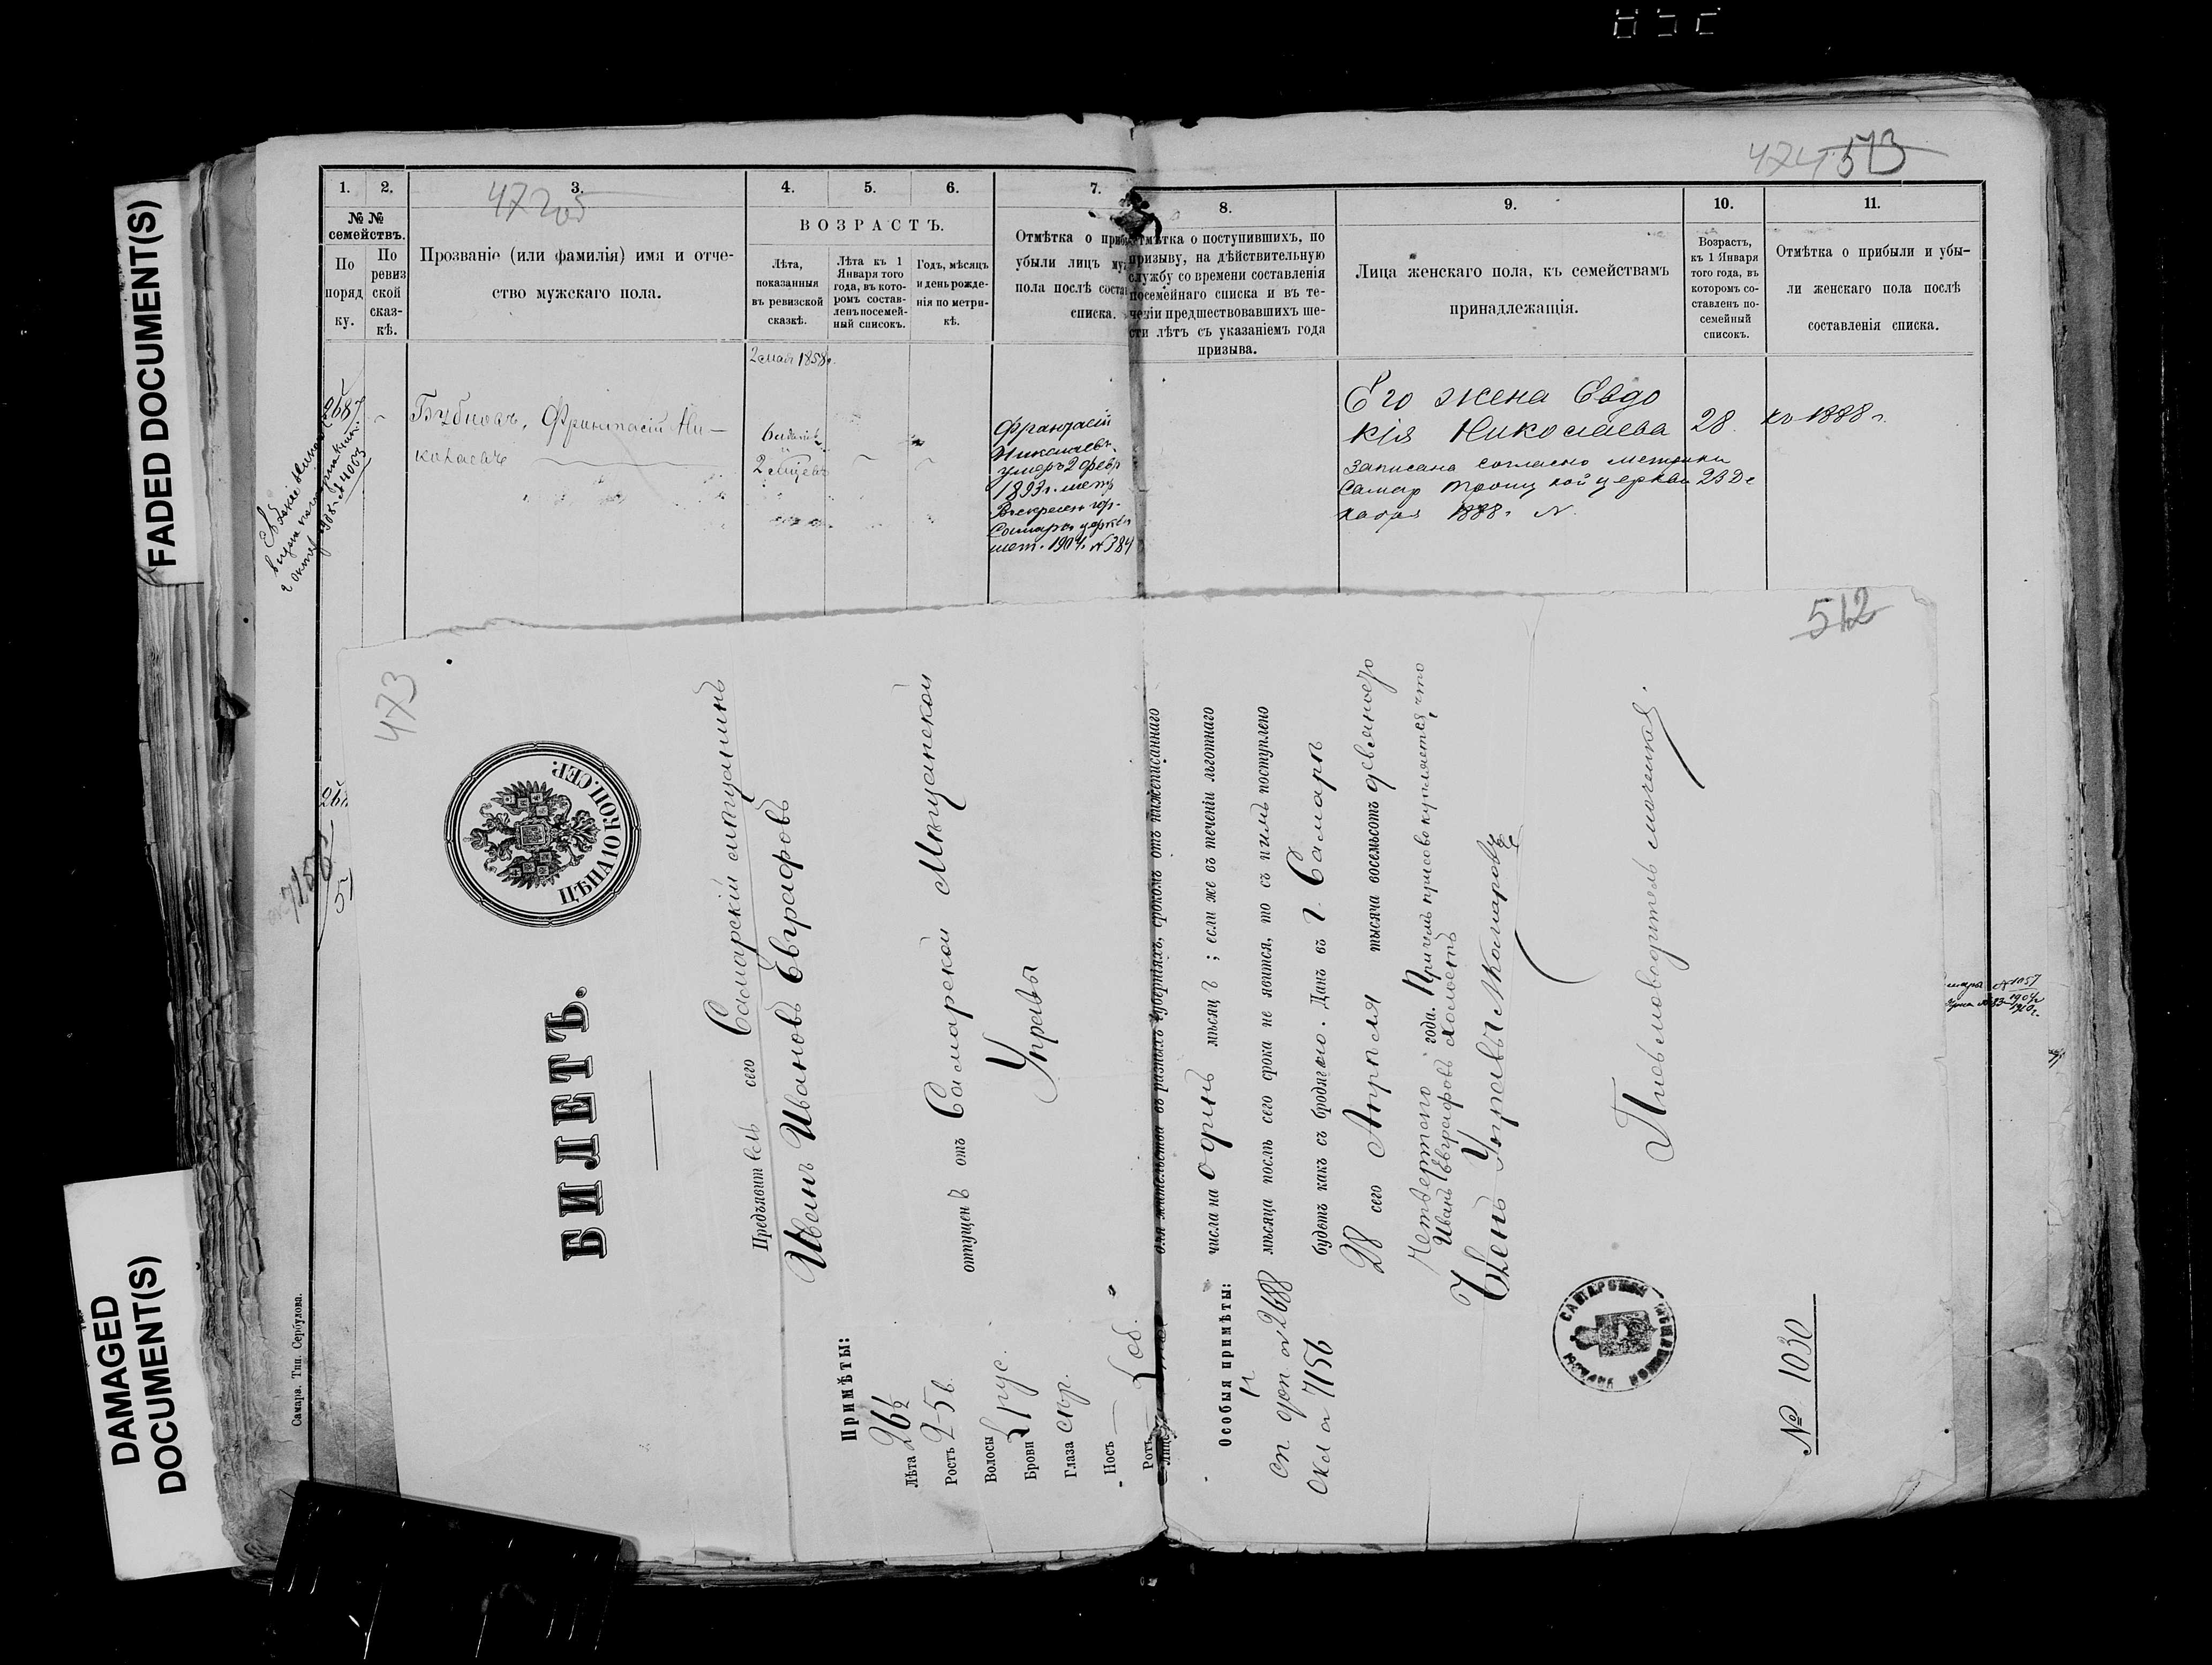 FADED DOCUMENT(S)
DAMAGED
DOCUMENT(S)
474 513
1. 2. 3. 4. 5. 6. 7.
472 об
№ №
семействъ.
По
поряд
ку.
По
ревиз
ской
сказ-
кѣ.
Прозваніе (или фамилія) имя и отче-
ство мужскаго пола.
ВОЗРАСТЪ.
Лѣта,
показанныя
въ ревизской
сказкѣ.
Лѣта къ 1
Января того
года, въ кото-
ромъ состав-
ленъ посемей-
ный списокъ.
Годъ, мѣсяцъ
и день рожде-
нія по метри-
кѣ.
Отмѣтка о приб
убыли лицъ му
пола послѣ соста
списка.
8. 9. 10. 11.
Отмѣтка о поступившихъ, по
призыву, на дѣйствительную
службу со времени составленія
посемейнаго списка и въ те-
ченіи предшествовавшихъ ше-
сти лѣтъ съ указаніемъ года
призыва.
Лица женскаго пола, къ семействамъ
принадлежащія.
Возрастъ,
къ 1 Января
того года, въ
которомъ со-
ставленъ по-
семейный
списокъ.
Отмѣтка о прибыли и убы-
ли женскаго пола послѣ
составленія списка.
2 мая 1858г.
2687
Бубновъ, Франтасій Ни-
колаевъ
2 мѣсяц
Франтасій
Николаевъ
умеръ 2 февр
1893 г. метр
Воскресен гор.
Самары церкви
мет. 1904 г. № 384
Его жена Евдо
кія Николаева 28 къ 1888 г.
Записана согласно метрики
Самар Троиц кой церкви 23 Де
кабря 1888 г. №
№ 4003
Самара. Тип. Сербулова.
473
512
ЦѢНА 10 КОП. СЕР.
БИЛЕТЪ.
Предъявитель сего Самарскій мѣщанинъ
Иванъ Ивановъ Евграфовъ
отпущенъ отъ Самарской Мѣщанской
Управы
для жительства въ разныхъ губерніяхъ, срокомъ отъ нижеписаннаго
числа на одинъ мѣсяцъ; если же въ теченіи льготнаго
мѣсяца послѣ сего срока не явится, то съ нимъ поступлено
будетъ какъ съ бродягою. Данъ въ г. Самарѣ
28 сего Апрѣля тысяча восемьсотъ девяносто
четвертого года. При чемъ присовокупляется, что
Иванъ Евграфовъ холостъ
Членъ Управы Комаровъ
Письмоводитель
Примѣты:
Лѣта 26½
Ростъ 2-5 в.
Волосы
Брови рус.
Глаза сѣр.
Носъ
Ротъ об.
Лице
Особыя примѣты:
сп. № 2688
Окл № 7156
№ 1030